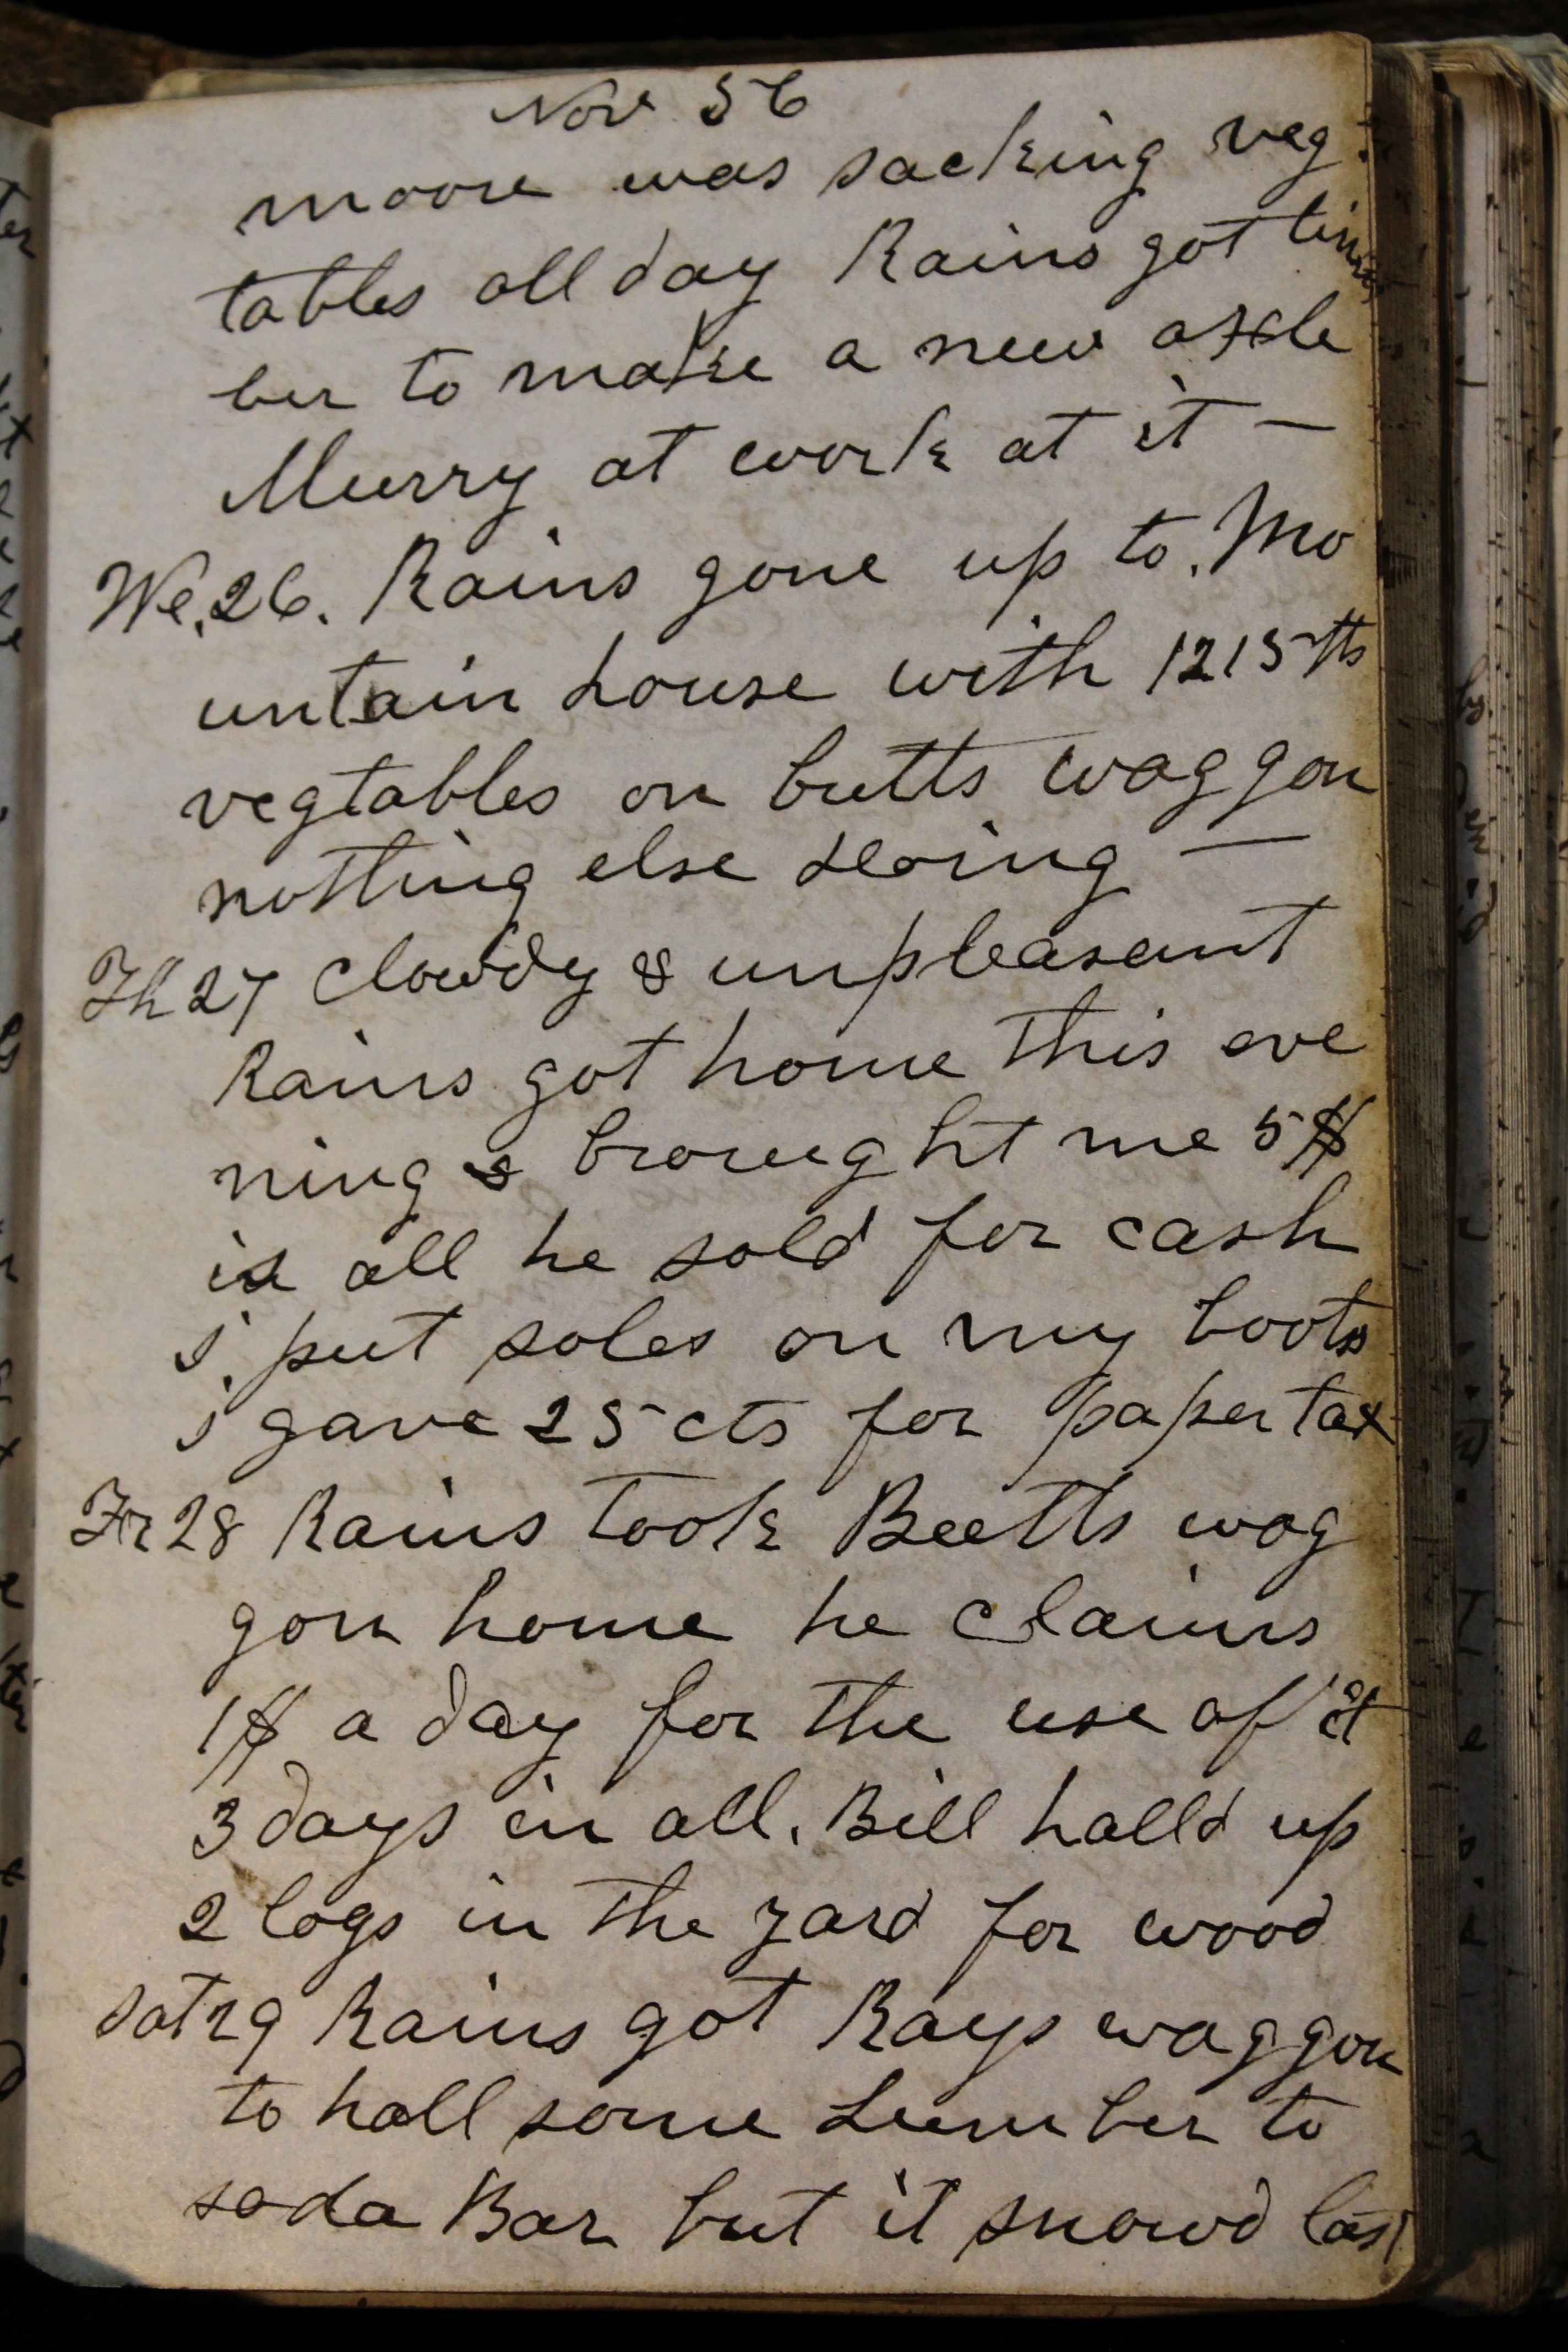 Nov 56
moore was sacking veg
tables all day Rains got tim
ber to make a new axcle
Murry at work at it —
We. 26. Rains gone up to. Mo
untain house with 1215 lts
vegtables on butts waggon
nothing else doing —
Th 27 Clowdy & unpleasant
Rains got home this eve
ning & brought me 5$
is all he sold for cash
i put soles on my boots
i gave 25 cts for paper tax
Fr 28 Rains took Beetts wag
gon home he claims
1$ a day for the use of it
3 days in all. Bill halld up
2 logs in the yard for wood
Sat 29 Rains got Rays waggon
to hall some Lumber to
soda Bar but it snowd last